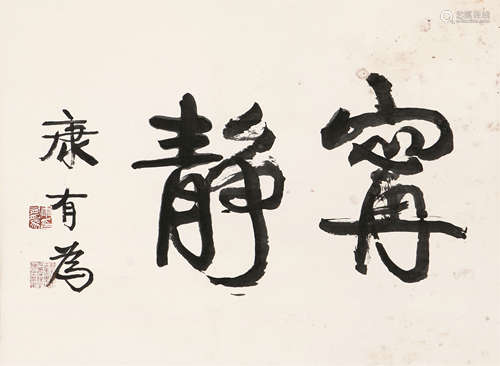 甯靜
康有為